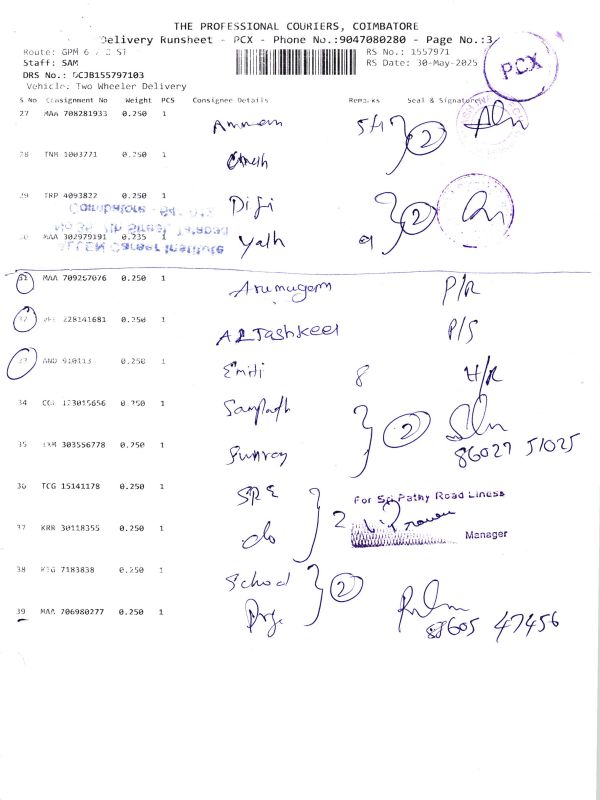 THE PROFESSIONAL COURIERS, COIMBATORE
Delivery Runsheet - PCX - Phone No.:9047080280 - Page No.:3/
Route: GPM 6 ST
RS No.: 1557971
Staff: SAM
RS Date: 30-May-2025
DRS No.: DCJB155797103
Vehicle: Two Wheeler Delivery
PCX
S No Consignment No Weight PCS Consignee Details Remarks Seal & Signature
27 MAA 708281933 0.250 1 Amman
2
28 TNM 1003771 0.250 1
29 TRP 4093822 0.250 1 Digi
2
Coimbatore
30 MAA 302979191 0.235 1 Yath
ALLEN Career Institute
31 MAA 709267076 0.250 1 Arumugam P/R
32 228141681 0.250 1 ALTashkeel P/S
33 AND 910113 0.250 1 8 H/R
34 123015656 0.250 1 Sampath 2
35 303556778 0.250 1 86027 51025
36 TCG 15141178 0.250 1 SPE
For Sri Pathy Road Liness
2
37 KRR 30118355 0.250 1 do
Manager
38 7183838 0.250 1 School
2
39 MAA 706980277 0.250 1
47456